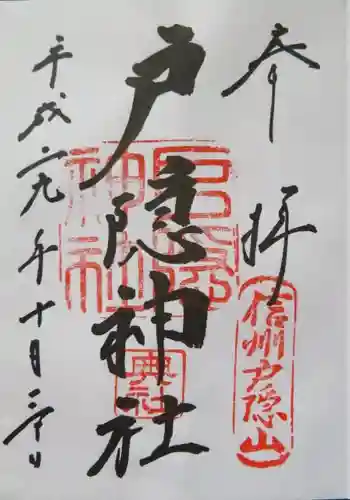 奉拝
信州戸隠山
戸隠神社
戸隠
神社
奥社
平成二九年十月日